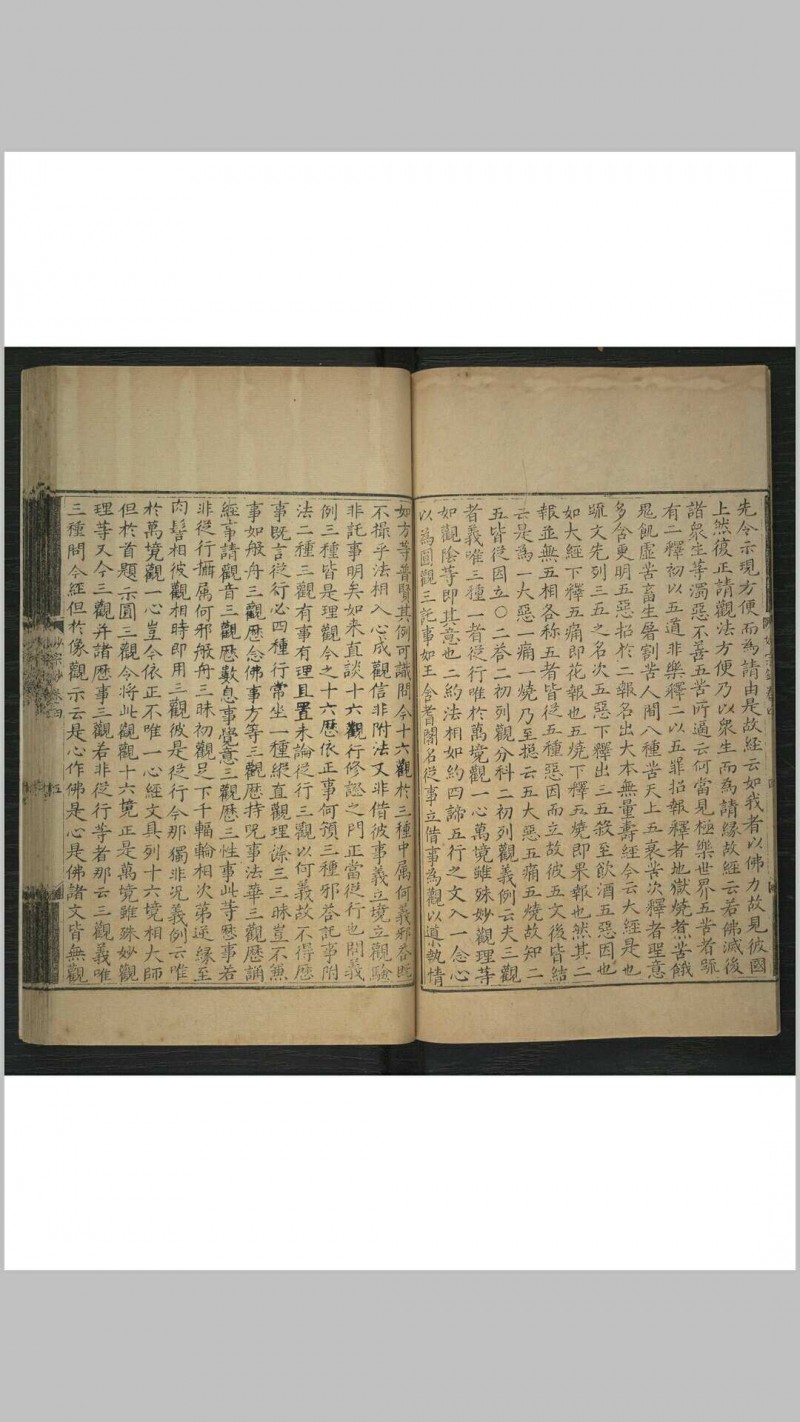 先令示現方便而為請由是故經云如我者以佛力故見彼國
上然後正請觀法方便乃以衆生而為請緣故經云若佛滅後
諸衆生等濁惡不善五苦所逼云何當見極樂世界五苦者䟽
有二釋初以五道非樂釋二以五罪招報釋者地獄燒煮苦餓
鬼飢虛苦畜生屠割苦人間八種苦天上五衰苦次釋者聖意
多含更明五惡招於二報名出大本無量壽經今云大經是也
䟽文先列三五之名次五惡下釋出三五殺至飲酒五惡因也
如大經下釋五痛即花報也五燒下釋五燒即果報也然其二
報並無五相各称五者皆從五種惡因而立故彼五文後皆結
云是為一大惡一痛一燒乃至揔云五大惡五痛五燒故知二
五皆從因立○二荅二初列觀分科二初列觀義例云夫三觀
者義唯三種一者從行唯於萬境觀一心萬境雖殊妙觀理等
如觀陰等即其意也二約法相如約四諦五行之文入一念心
以為圓觀三託事如王舍耆闍名從事立借事為觀以導執情
如方等普賢其例可識問今十六觀於三種中属何義邪荅既
不撮乎法相入心成觀信非附法又非借彼事義立境立觀驗
非託事明矣如来直談十六觀行修證之門正當從行也問義
例三種皆是理觀今之十六歷依正事何預三種邪荅託事附
法二種三觀有事有理且置未論從行三觀以何義故不得歷
事既言從行必四種行常坐一種縱直觀理除三三昧豈不兼
事如般舟三觀歷念佛事方等三觀歷持呪事法華三觀歷誦
經事請觀音三觀歷數息事覺意三觀歷三性事此等歷事若
非從行攝属何邪般舟三昧初觀足下千輻輪相次第逆緣至
肉髻相彼觀相時即用三觀彼是從行今那獨非况義例云唯
於萬境觀一心豈令依正不唯一心經文具列十六境相大師
但於首題示圓三觀令將此觀觀十六境正是萬境雖殊妙觀
理等又今三觀并諸歷事三觀若非從行等者那云三觀義唯
三種問今經但於像觀示云是心作佛是心是佛諸文皆無觀